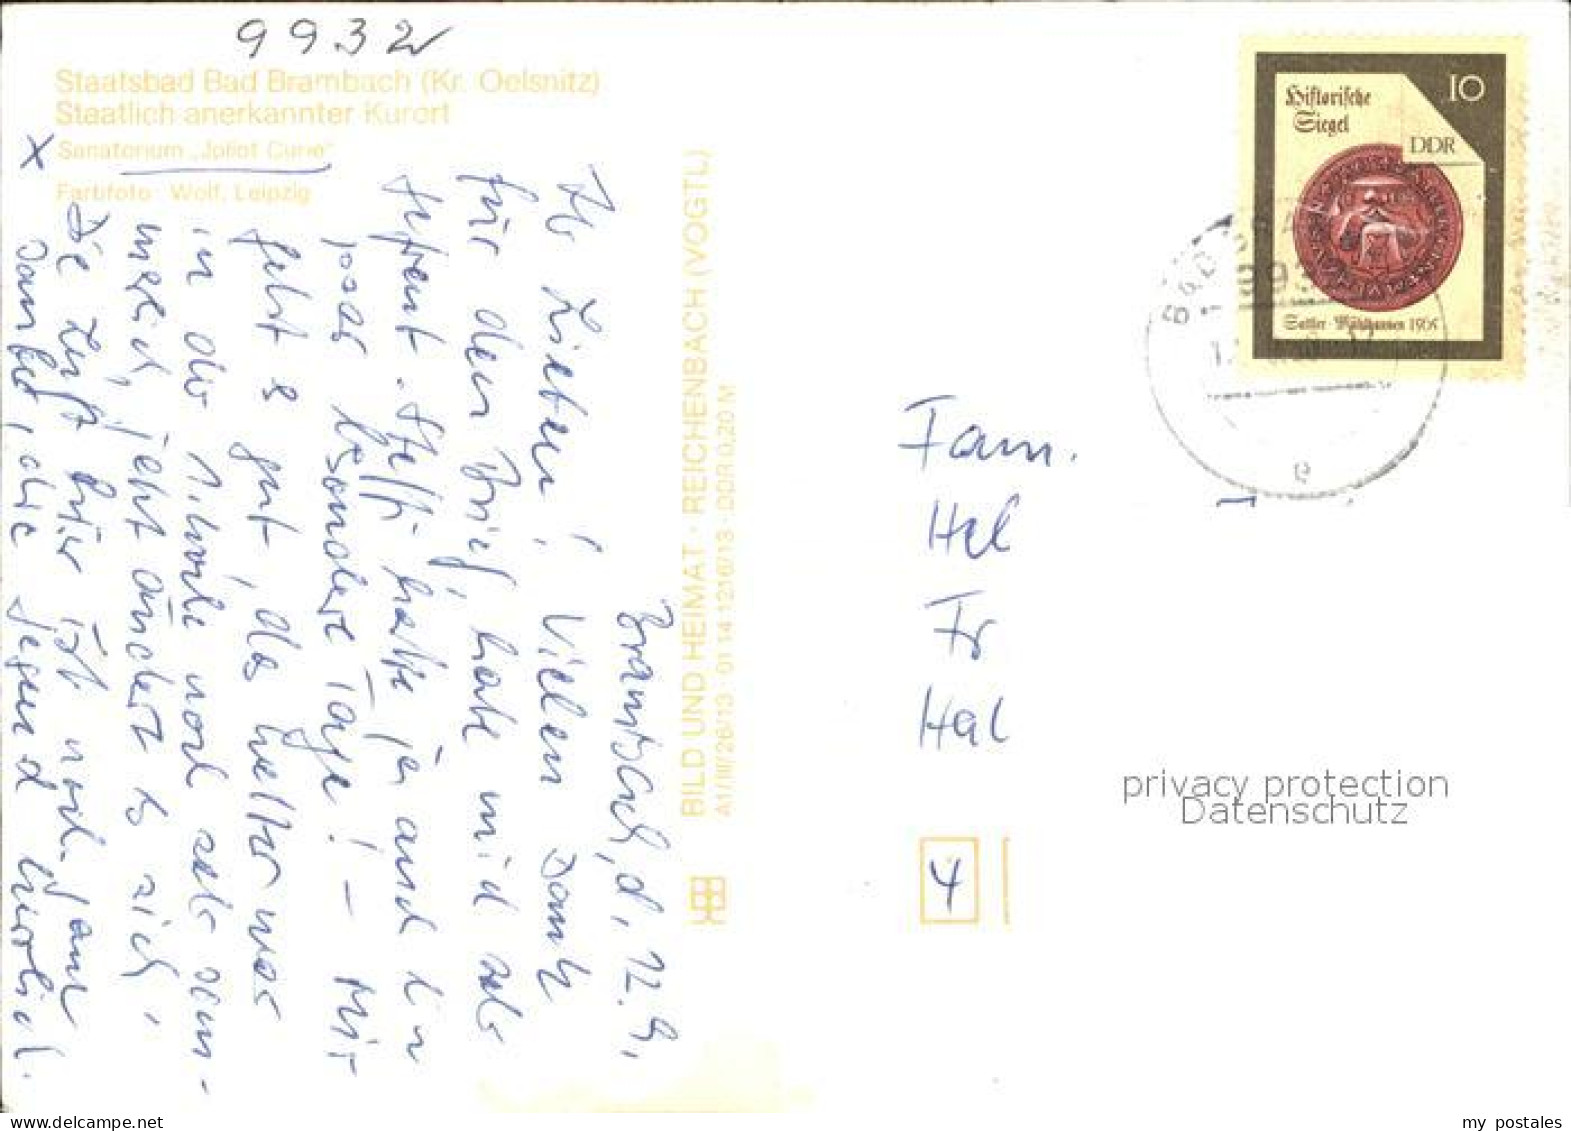 9932
Staatsbad Bad Brambach (Kr. Oelsnitz)
Staatlich anerkannter Kurort
Sanatorium „Joliot Curie"
Farbfoto: Wolf, Leipzig
x
Brambach, d. 12.9.
Ihr Lieben! Vielen Dank
für den Brief, habe mich sehr
gefreut. Steffi hatte ja auch ein
paar besondere Tage! - Mir
geht es gut, das Wetter war
in der 1. Woche noch sehr som-
merlich, jetzt ändert es sich,
Die Luft hier ist noch ganz
sauber, die Gegend herrlich.
BILD UND HEIMAT · REICHENBACH (VOGTL)
A1/III/26/13 · 01 14 1216/13 · DDR 0,20 M
Historische
Siegel
10
DDR
Sattler · Mühlhausen 1565
Fam.
Hel
Fr
Hal
4
privacy protection
Datenschutz
my postales